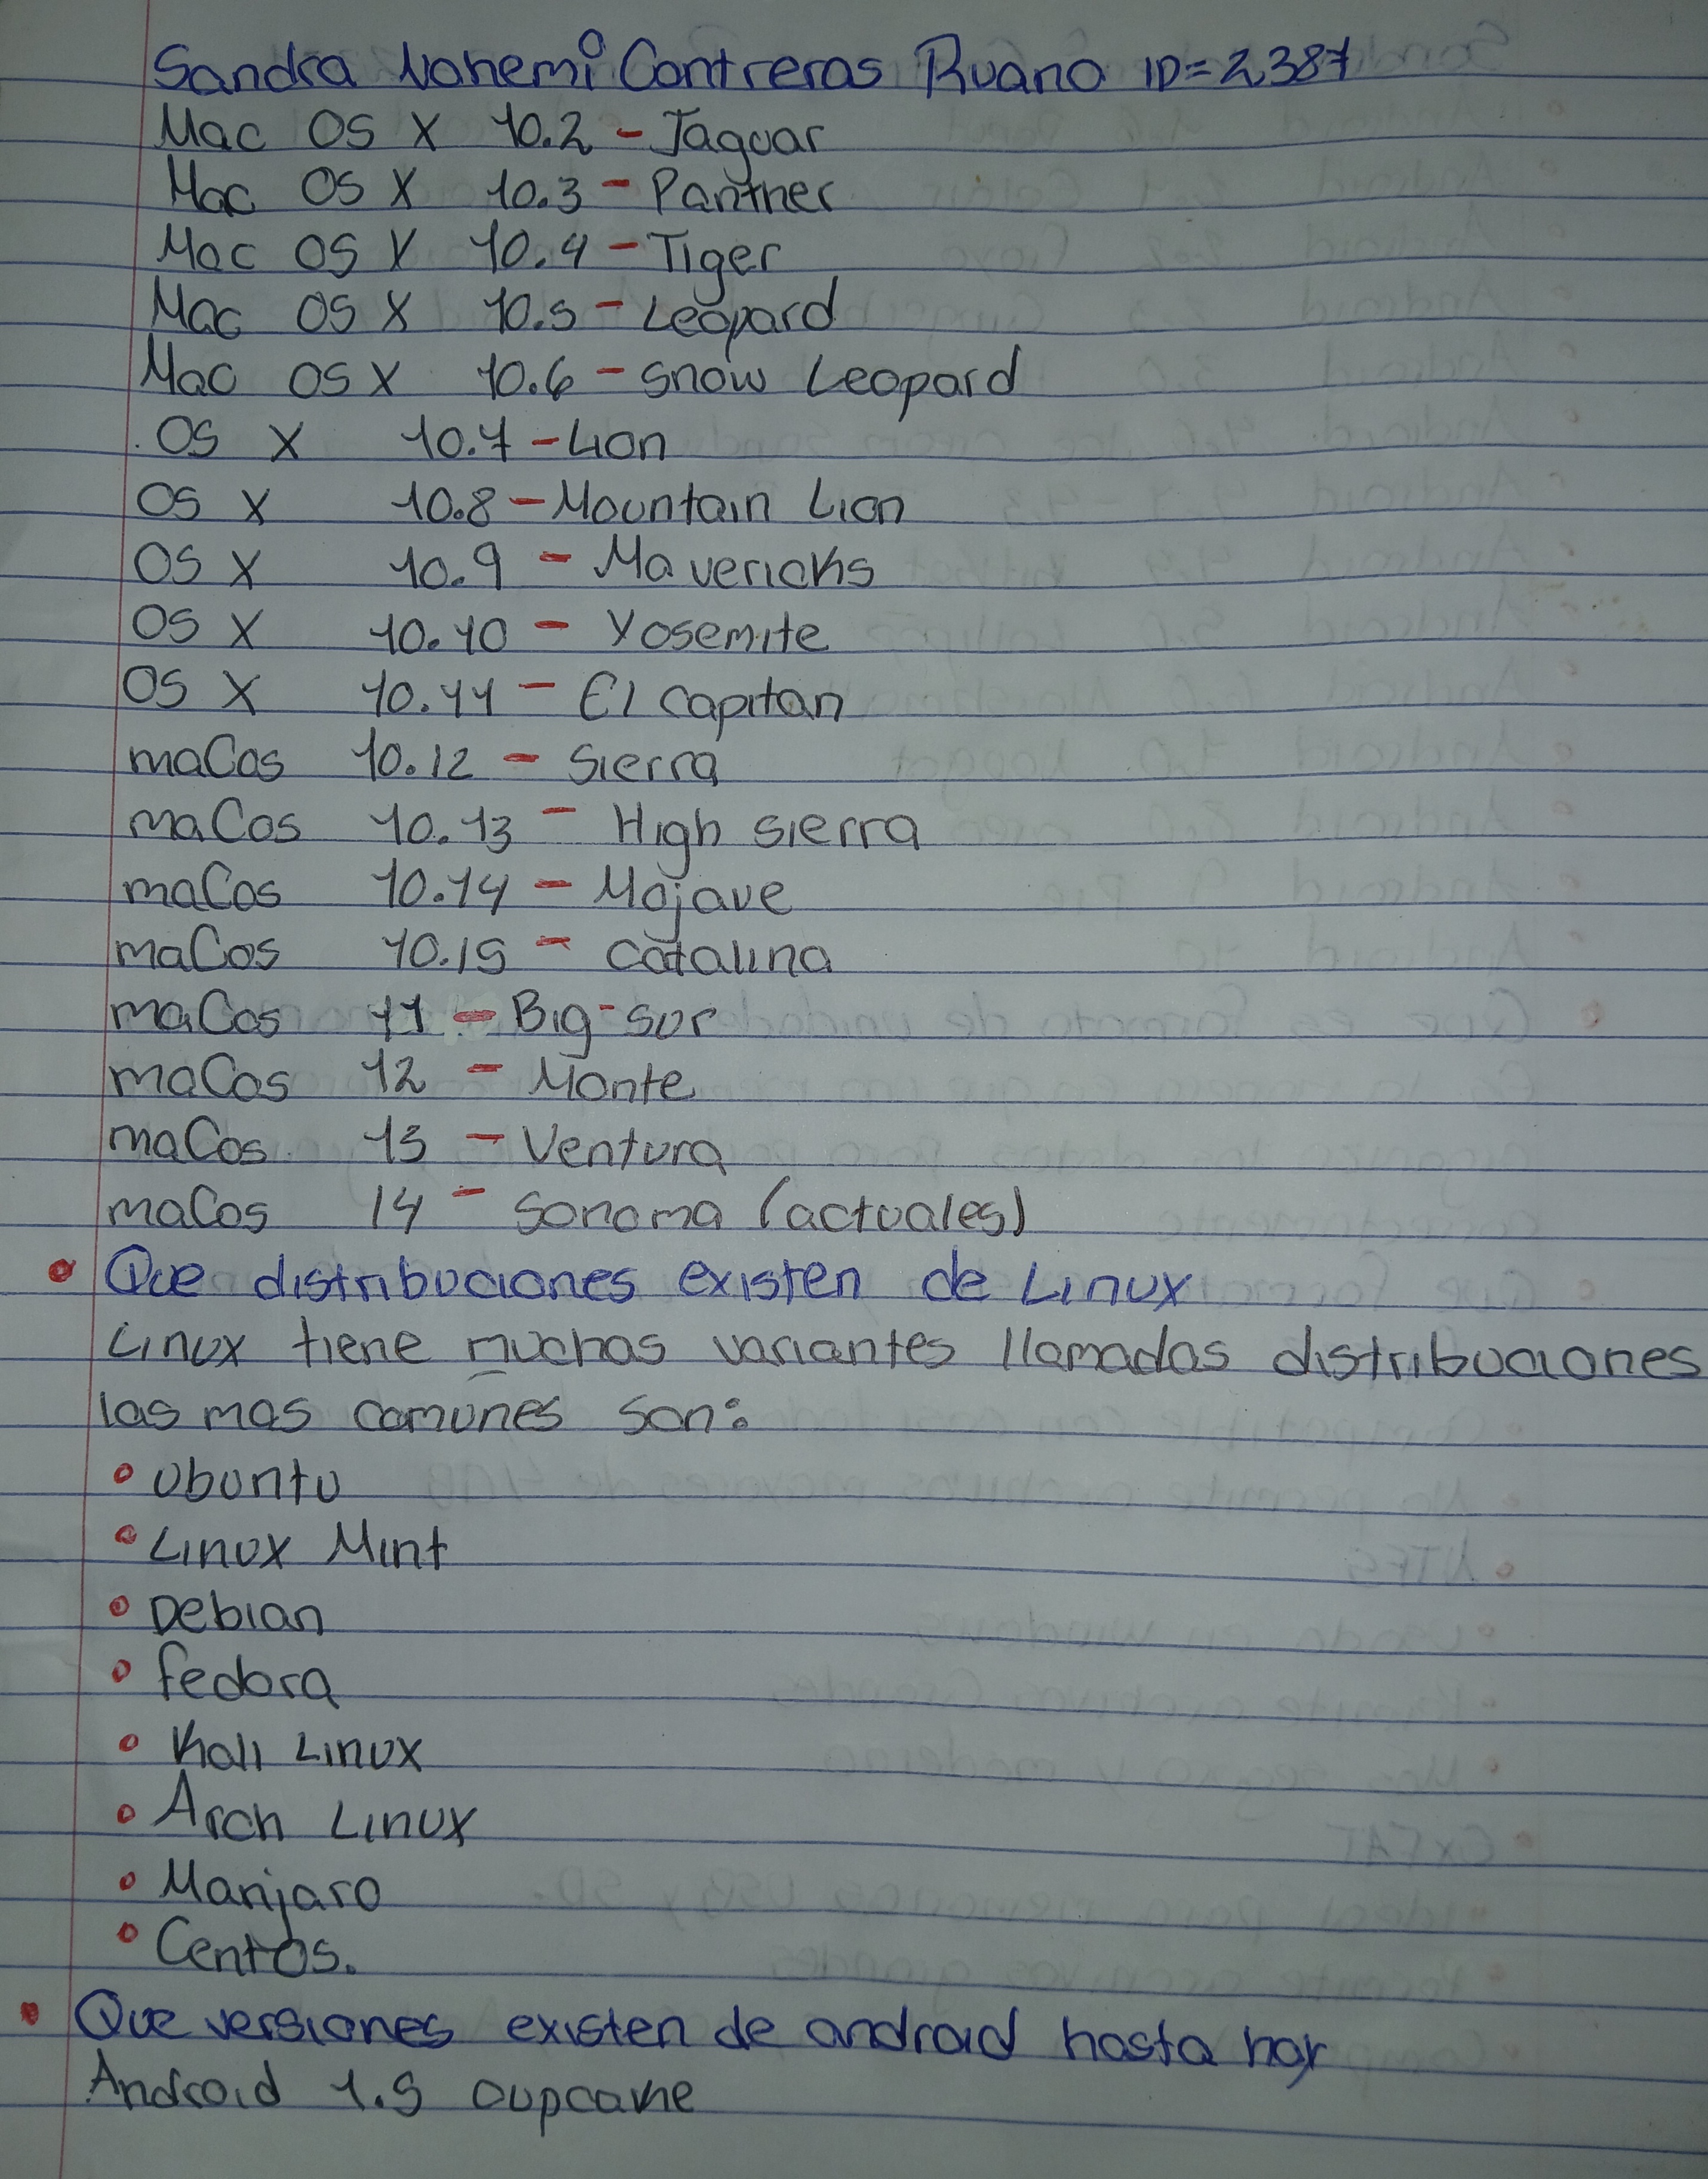 Sandra Nohemi Contreras Ruano ID=2387
Mac OS X 10.2 - Jaguar
Mac OS X 10.3 - Panther
Mac OS X 10.4 - Tiger
Mac OS X 10.5 - Leopard
Mac OS X 10.6 - snow Leopard
OS X 10.7 - Lion
OS X 10.8 - Mountain Lion
OS X 10.9 - Mavericks
OS X 10.10 - Yosemite
OS X 10.11 - El capitan
maCos 10.12 - Sierra
maCos 10.13 - High sierra
maCos 10.14 - Mojave
maCos 10.15 - catalina
maCos 11 - Big-sur
maCos 12 - Monte
maCos 13 - Ventura
maCos 14 - Sonoma (actuales)
• Que distribuciones existen de Linux
Linux tiene muchas variantes llamadas distribuciones
las mas comunes son:
• Ubuntu
• Linux Mint
• Debian
• fedora
• Kali Linux
• Arch Linux
• Manjaro
• CentOS.
• Que versiones existen de android hasta hoy
Android 1.5 cupcake